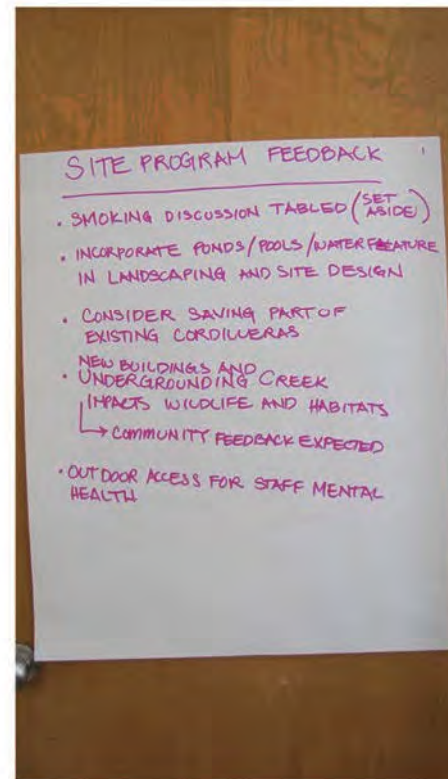 SITE PROGRAM FEEDBACK 1
• SMOKING DISCUSSION TABLED (SET ASIDE)
• INCORPORATE PONDS/POOLS/WATER FEATURE
IN LANDSCAPING AND SITE DESIGN
• CONSIDER SAVING PART OF
EXISTING CORDILLERAS
NEW BUILDINGS AND
• UNDERGROUNDING CREEK
IMPACTS WILDLIFE AND HABITATS
→ COMMUNITY FEEDBACK EXPECTED
• OUTDOOR ACCESS FOR STAFF MENTAL
HEALTH